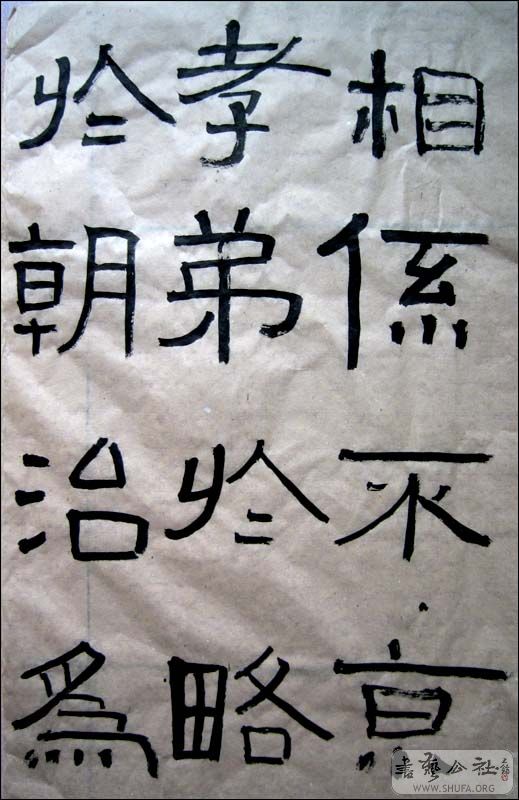 相係不京
孝弟於略
於朝治為
書藝公社
WWW.SHUFA.ORG